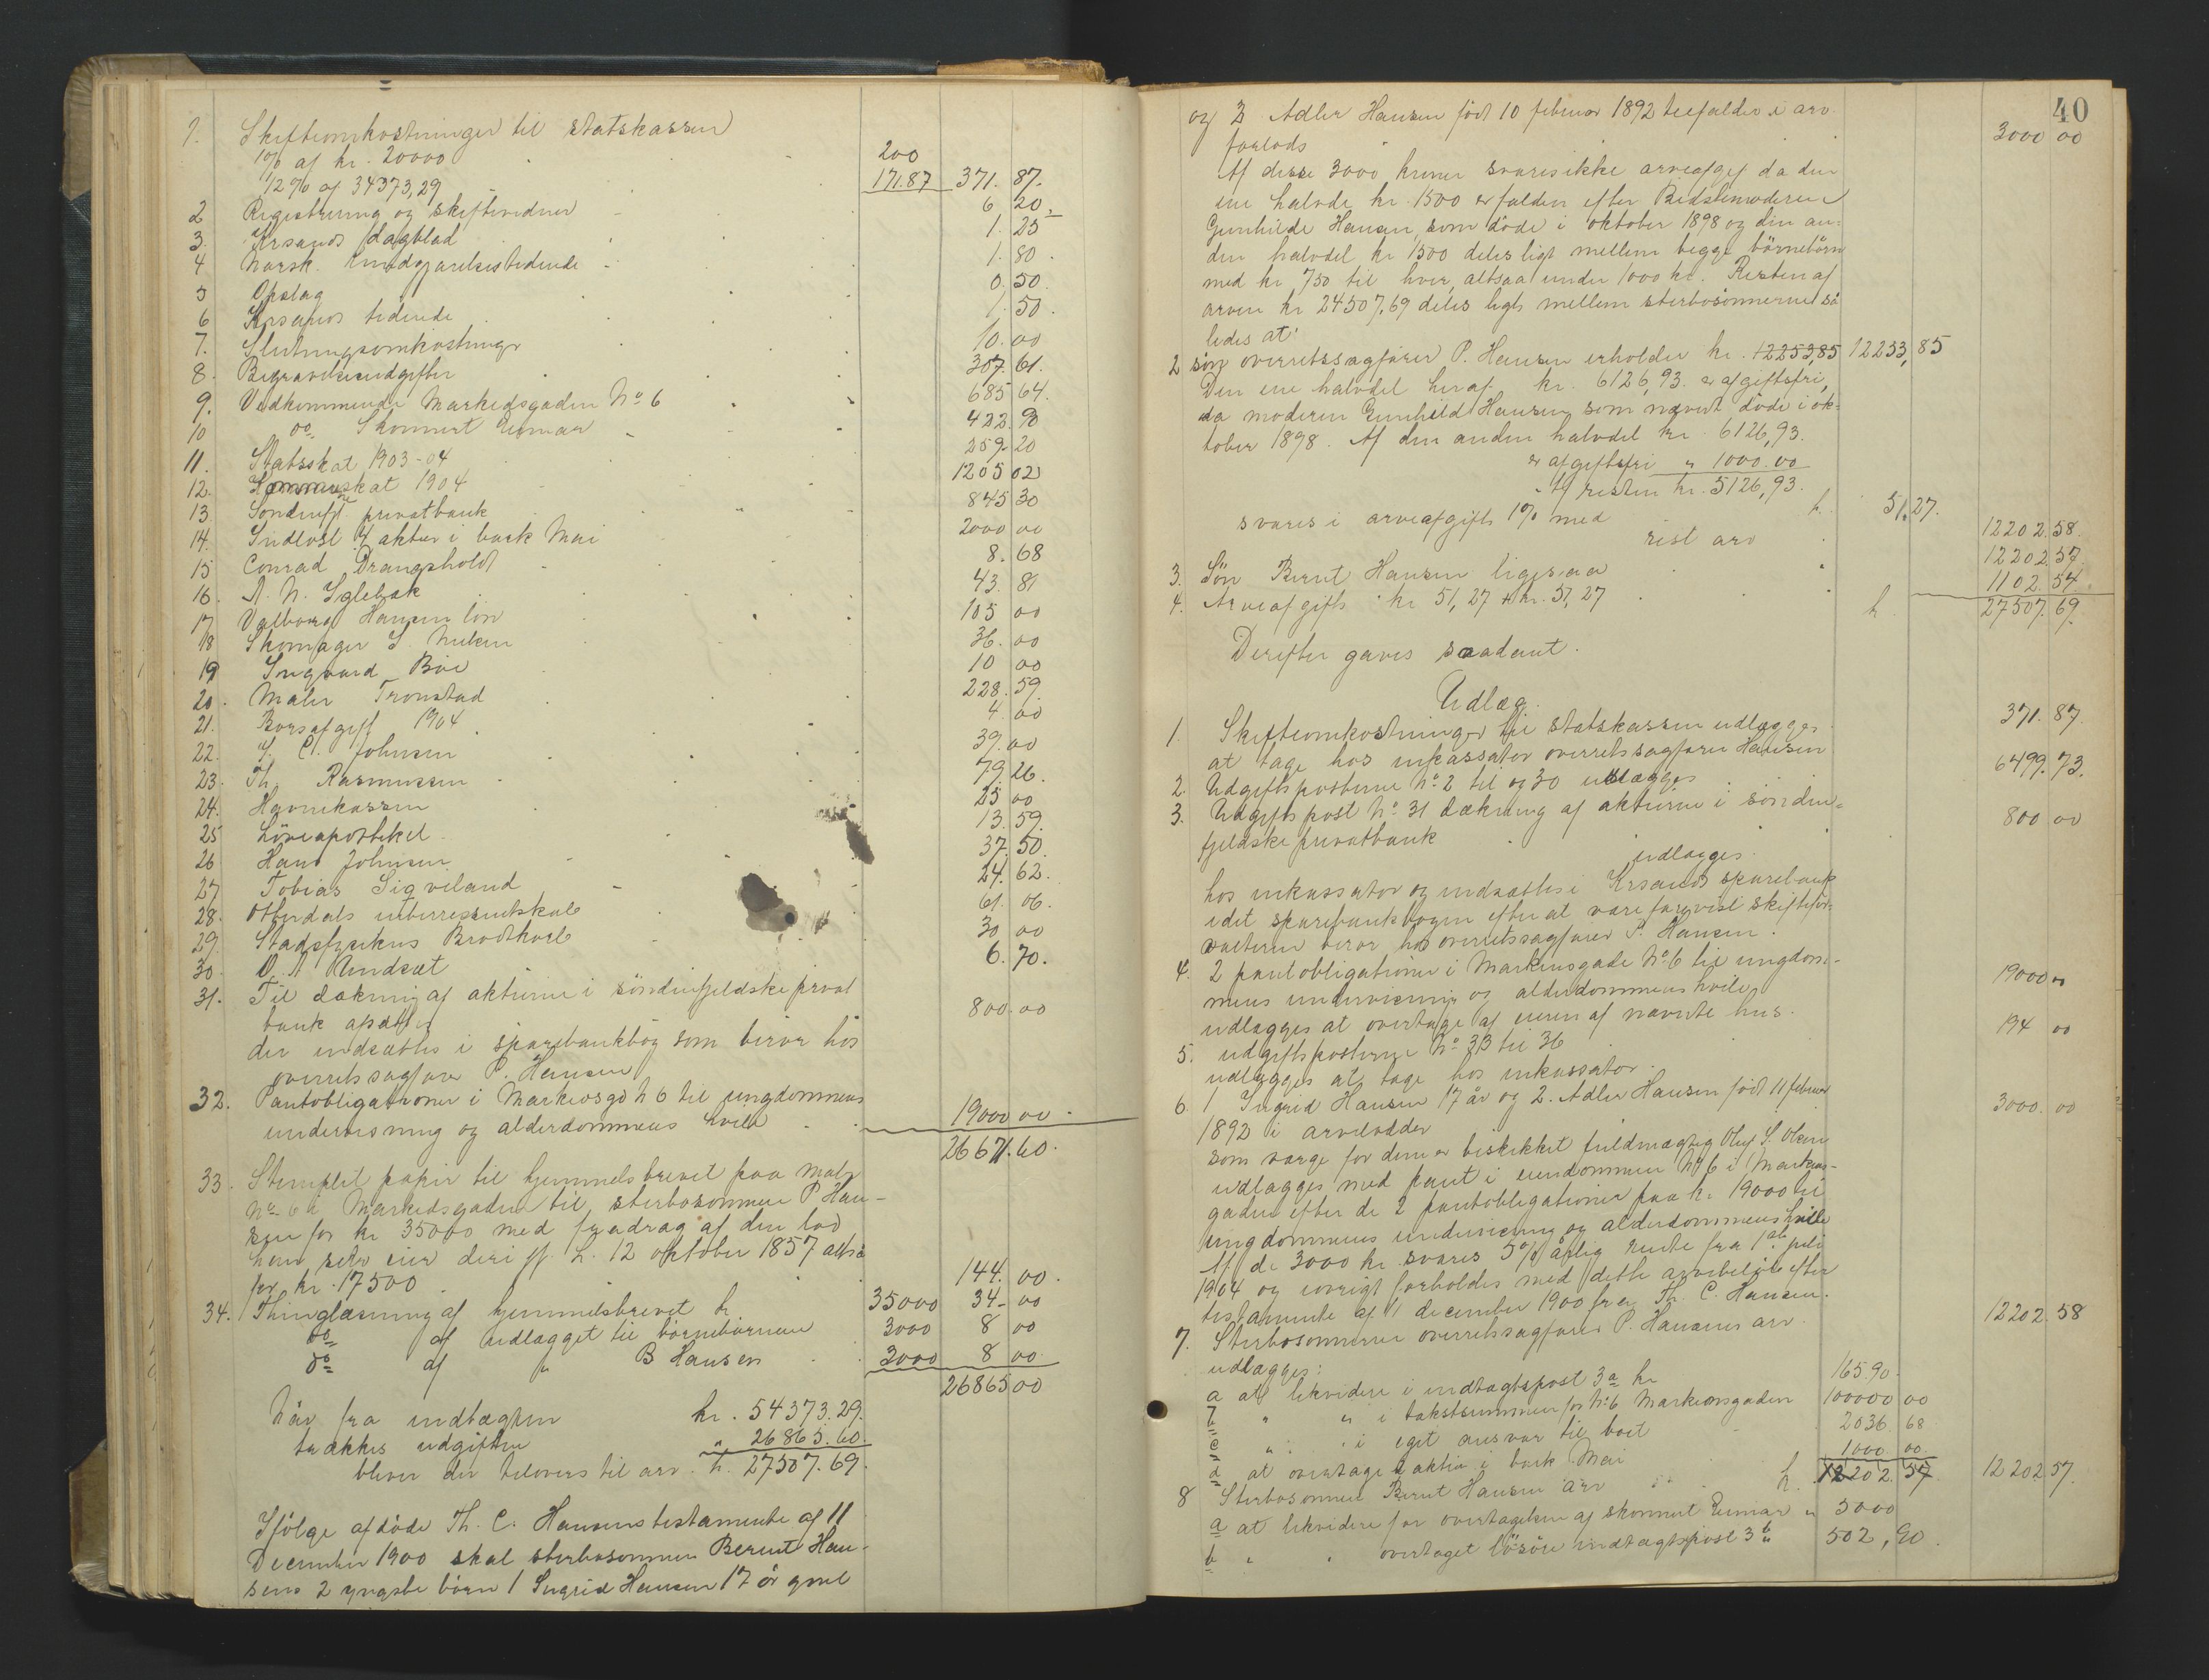 1. Skifteomkostninger til statskassen
1% af kr. 20000 200
1/2% af 34373,29 171.87 371. 87.
2 Registrering og skiftevidner 6 20.
3. Krsands dagblad 1. 25
4 Norsk kundgjørelsestidende 1. 80.
5 Opslag 0. 50.
6 Krsands tidende 1. 50.
7. Slutningsomkostninger 10. 00
8. Begravelsesudgifter 307. 61.
9. Vedkommende Markedsgaden No 6 685 64.
10 do Skonnert Eimar 422. 90
11. Statsskat 1903-04 259. 20
12. Kommuneskat 1904 1205 02
13. Søndenfj. privatbank 845 30
14. Indløst 4 aktier i bark Mai 2000 00
15 Conrad Drangsholdt 8. 68
16. A. N. Iglebæk 43. 81
17 Valborg Hansen løn 105 00
18 Skomager I. Nielsen 36. 00
19 Ingvard Bøe 10 00
20. Maler Tronstad 228. 59.
21. Borsafgift 1904 4. 00
22. J. C. Johnsen 39. 00
23. Th. Rasmussen 79. 26.
24. Havnekassen 25 00
25 Løveapotheket 13. 59.
26 Hans Johnsen 37. 50.
27 Tobias Sigveland 24. 62.
28. Otterdals interessentskab 61. 06.
29. Stadsfysikus Brodtkorb 30 00
30. O. A. Undsæt 6. 70.
31. Til dækning af aktierne i søndenfjeldske privat
bank afsættes 800. 00
der indsættes i sparebankbog som beror hos
overretssagfører P. Hansen
32. Pantobligationer i Markensgd No 6 til ungdommens
undervisning og alderdommens hvile 19000 00.
26671. 60.
33. Stemplet papir til hjemmelsbrevet paa Matr
No 6 i Markedsgaden til sterbosønnen P Han-
sen for kr 35000 med fradrag af den lod
han selv eier deri jf. L. 12 oktober 1857 altså
for kr. 17500 144. 00.
34. Thinglæsning af hjemmelsbrevet kr 35000 34- 00
do af udlægget til børnebørnene 3000 8 00
do af " B Hansen 3000 8 00
26865 00
Når fra indtægten kr. 54373. 29.
trækkes udgiften " 26865. 60.
bliver der tilovers til arv kr. 27507. 69.
Ifølge afdøde Th. C. Hansens testamente af 11
December 1900 skal sterbosønnen Bernt Han-
sens 2 yngste børn 1 Ingrid Hansen 17 år gml
40
og 2 Adler Hansen født 10 februar 1892 tilfalder i arv
forlods 3000 00
Af disse 3000 kroner svares ikke arveafgif da den
ene halvde kr. 1500 er falden efter Bedstemoderen
Gunhilde Hansen, som døde i oktober 1898 og den an-
den halvdel kr 1500 deles ligt mellem begge børnebørn
med kr 750 til hver, altsaa under 1000 kr. Resten af
arven kr 24507.69 deles ligt mellem sterbosønnerne så
ledes at
2 søn overretssagfører P. Hansen erholder kr. 12253,85 12253,85
Den ene halvdel heraf kr. 6126,93. er afgiftsfri,
da moderen Gunhild Hansen som nævnt døde i ok-
tober 1898. Af den anden halvdel kr. 6126,93.
er afgiftsfri " 1000.00
Af resten kr. 5126,93.
svares i arveafgift 1% med kr. 51.27.
rest arv 12202. 58.
3. Søn Bernt Hansen ligesaa 12202. 57.
4. Arveafgift kr 51,27 + kr. 51,27 102. 54
kr 27507. 69.
Derefter gaves saadant.
Udlæg.
1. Skifteomkostninger til statskassen udlægges 371. 87.
at tage hos inkassator overretssagfører Hansen
2. Udgiftsposterne No 2 til og 30 udlægges 6499. 73.
3. Udgiftspost No 31 dækning af aktierne i sønden-
fjeldske privatbank 800 00
udlægges
hos inkassator og indsættes i Krsands sparebank
idet sparebankbogen efter at være forevist skiftefor-
valteren beror hos overretssagfører P. Hansen.
4. 2 pantobligationer i Markensgade No 6 til ungdom-
mens undervisning og alderdommens hvile 19000 00
udlægges at overtage af eieren af nævnte hus.
5. udgiftsposterne No 33 til 36 194 00
udlægges at tage hos inkassator.
6. 1 Ingrid Hansen 17 år og 2. Adler Hansen født 11 februar
1892 i arvelodder 3000. 00
som værge for dem er beskikket fuldmægtig Oluf S. Olsen
udlægges med pant i eiendommen No 6 i Markens-
gaden efter de 2 pantobligationer paa kr. 19000 til
ungdommens undervisning og alderdommens hvile
Af de 3000 kr svares 5% årlig rente fra 1ste juli
1904 og iøvrigt forholdes med dette arvebeløb efter
testamente af 11 december 1900 fra Th. C. Hansen.
7. Sterbosønnen overretssagfører P. Hansens arv 12202. 58
udlægges:
a at likvidere i indtægtspost 3a kr 165.90.
b " " i takstsummen for No 6 Markensgaden 10000 00
c " " i eget ansvar til boet 2036. 68
d at overtage 2 aktier i bark Mai 1000. 00.
kr 12202. 57.
8 Sterbosønnen Bernt Hansen arv kr. 12202 57.
a at likvidere for overtagelsen af skonnert Eimar " 3000
b " " overtaget løsøre indtægtspost 3b " 502,90.